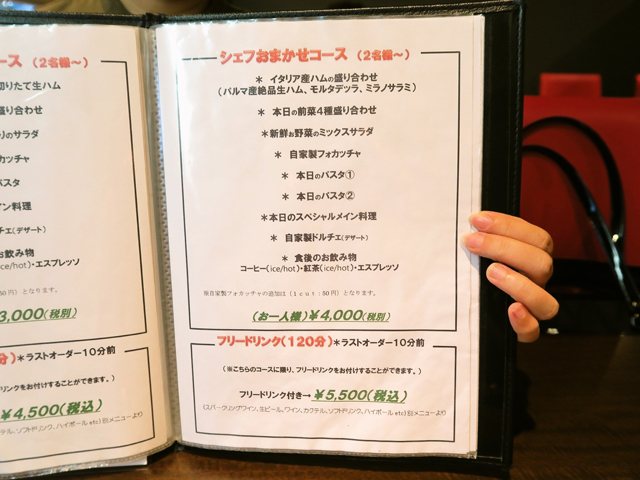 ース (2名様~)
切りたて生ハム
盛り合わせ
りのサラダ
カッチャ
パスタ
イン料理
チェ(デザート)
お飲み物
(ice/hot)・エスプレッソ
50円)となります。
3,000(税別)
分)＊ラストオーダー10分前
リンクをお付けすることができます。)
¥4,500(税込)
テル、ソフトドリンク、ハイボール etc)別メニューより
シェフおまかせコース (2名様~)
＊ イタリア産ハムの盛り合わせ
(パルマ産絶品生ハム、モルタデッラ、ミラノサラミ)
＊ 本日の前菜4種盛り合わせ
＊新鮮お野菜のミックスサラダ
＊ 自家製フォカッチャ
＊ 本日のパスタ①
＊ 本日のパスタ②
＊本日のスペシャルメイン料理
＊ 自家製ドルチェ(デザート)
＊ 食後のお飲み物
コーヒー(ice/hot)・紅茶(ice/hot)・エスプレッソ
※自家製フォカッチャの追加は(1cut:50円)となります。
(お一人様)¥4,000(税別)
フリードリンク(120分)＊ラストオーダー10分前
(※こちらのコースに限り、フリードリンクをお付けすることができます。)
フリードリンク付き→¥5,500(税込)
(スパークリングワイン、生ビール、ワイン、カクテル、ソフトドリンク、ハイボール etc)別メニューより